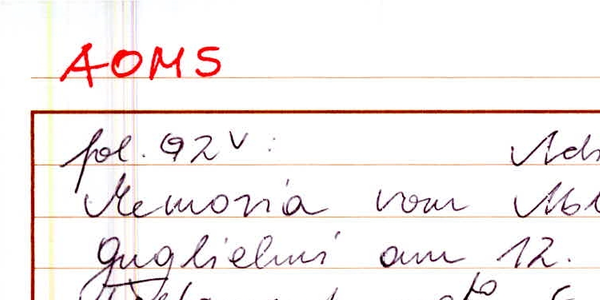 AOMS
fol. 92v:
Memoria vom
Guglielmi am 12.